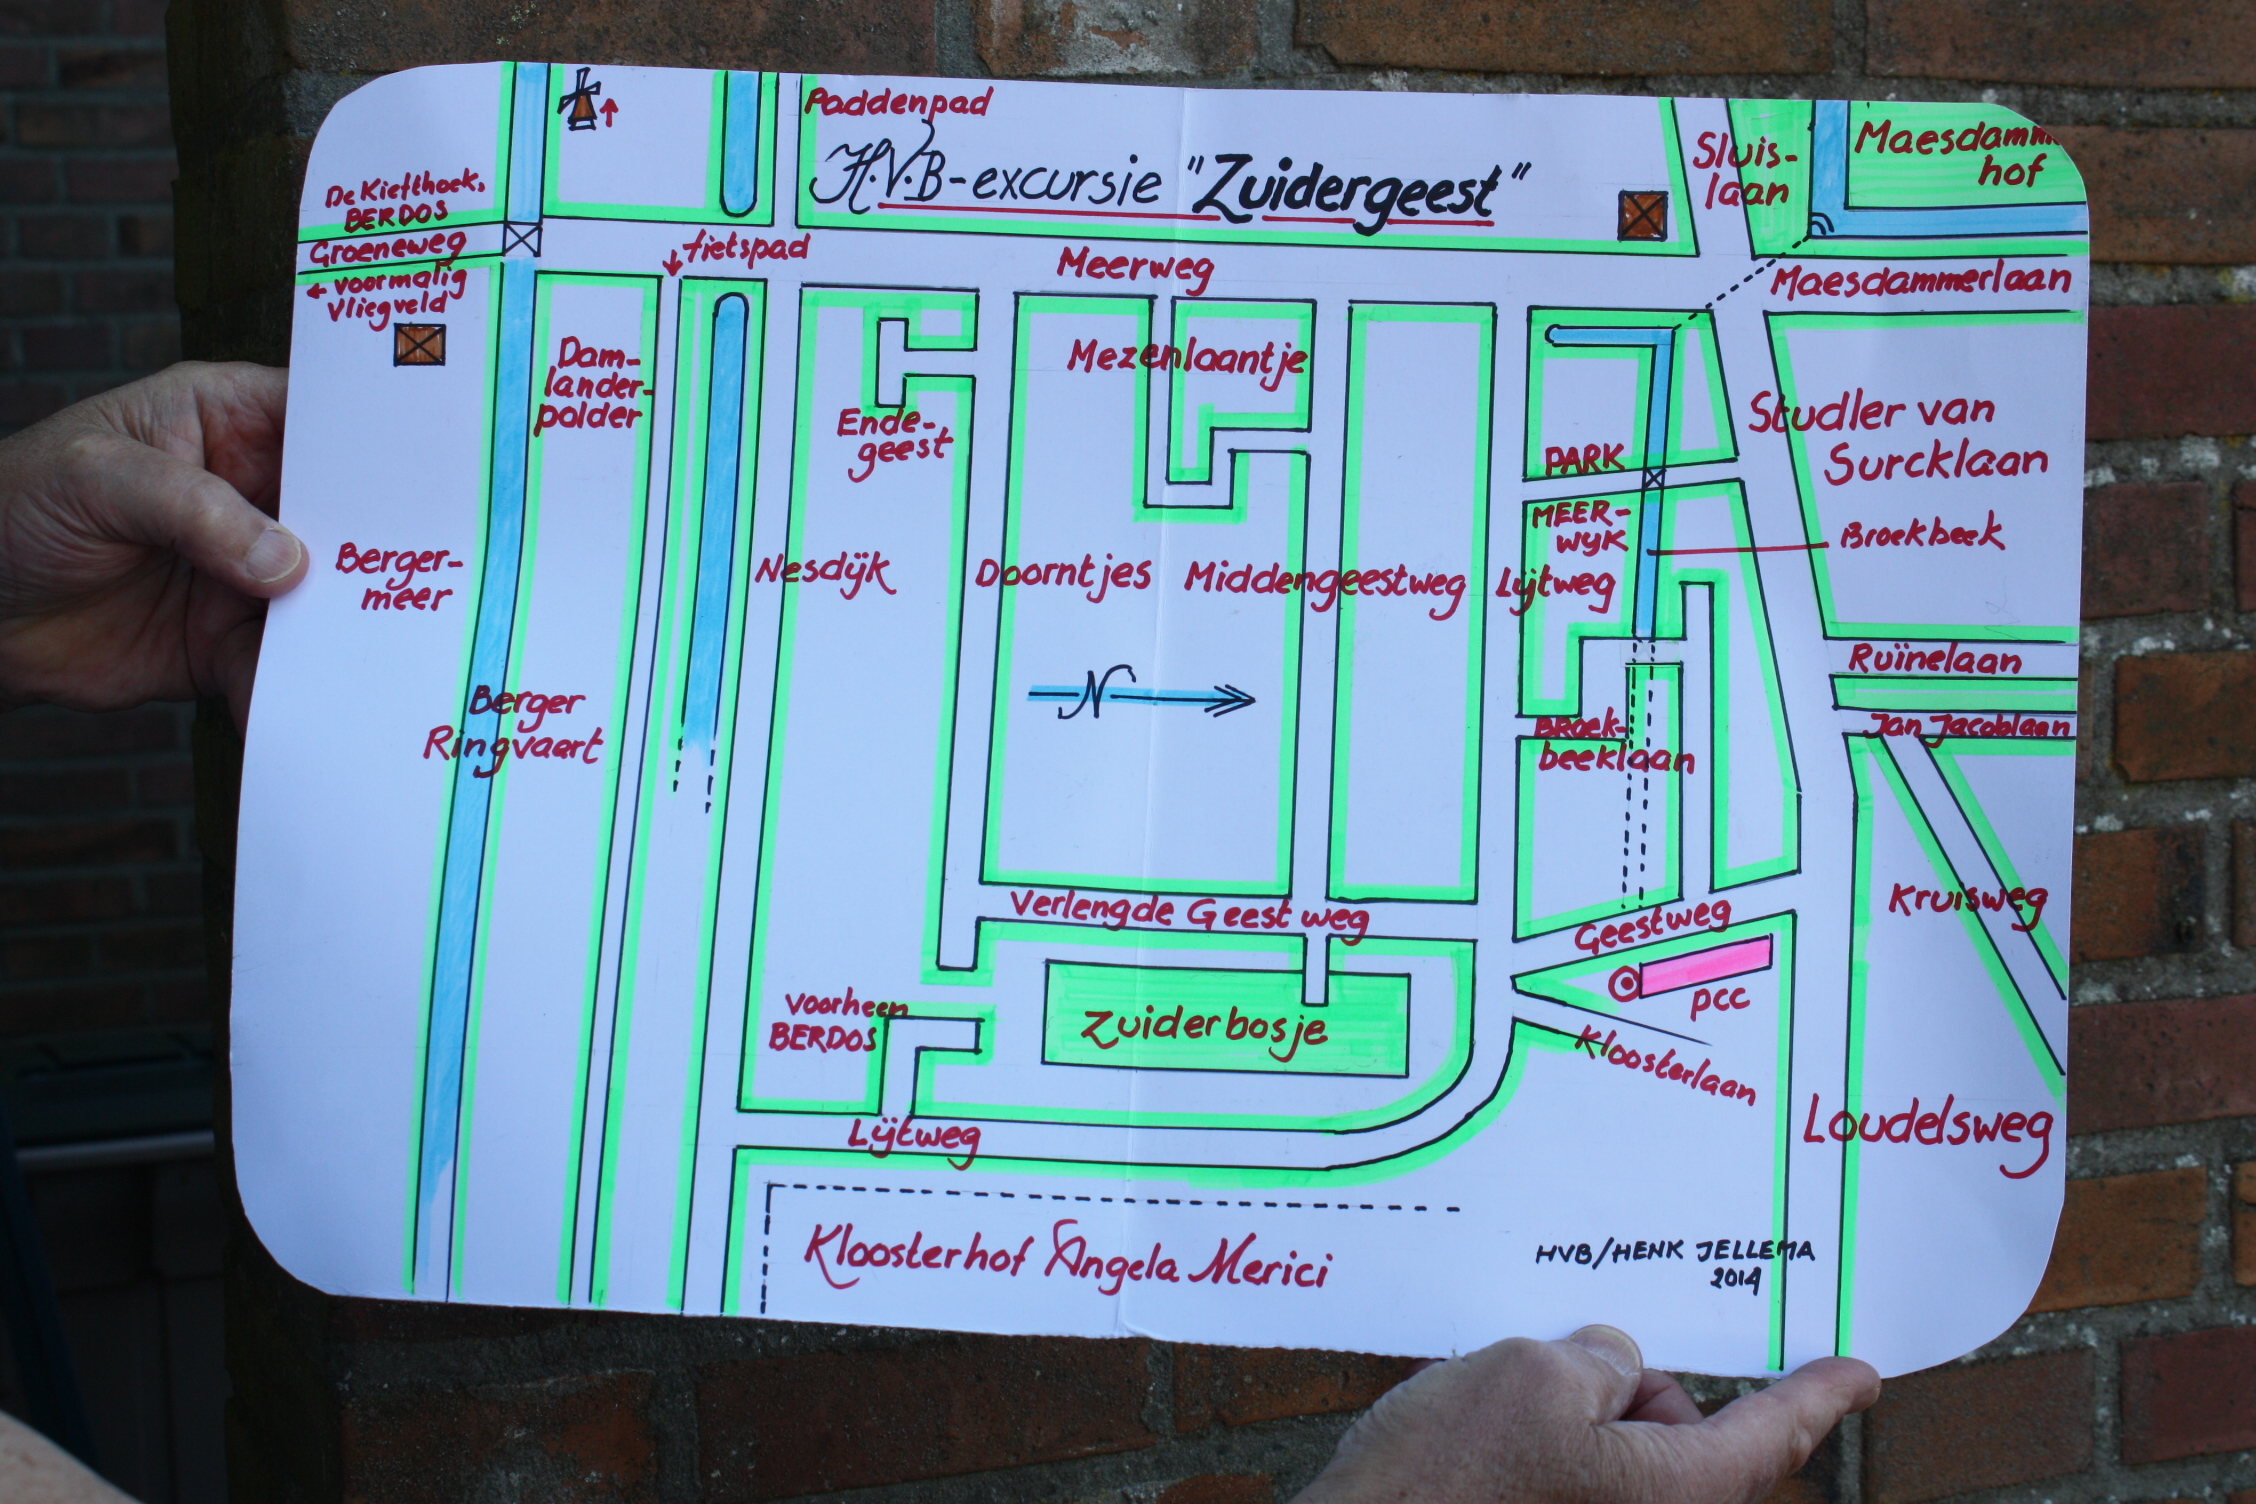 Paddenpad
H.V.B-excursie "Zuidergeest"
Sluis-
laan
Maesdamm
hof
De Kiefthoek,
BERDOS
Groeneweg
← voormalig
Vliegveld
fietspad
Meerweg
Maesdammerlaan
Dam-
lander-
polder
Ende-
geest
Mezenlaantje
PARK
MEER-
WIJK
Studler van
Surcklaan
Broekbeek
Berger-
meer
Nesdijk
Doorntjes
Middengeestweg
Lijtweg
N
Ruïnelaan
Jan Jacoblaan
Berger
Ringvaart
BROEK-
beeklaan
Verlengde Geestweg
Geestweg
Kruisweg
pcc
Kloosterlaan
voorheen
BERDOS
Zuiderbosje
Lijtweg
Loudelsweg
Kloosterhof Angela Merici
HVB/HENK JELLEMA
2014